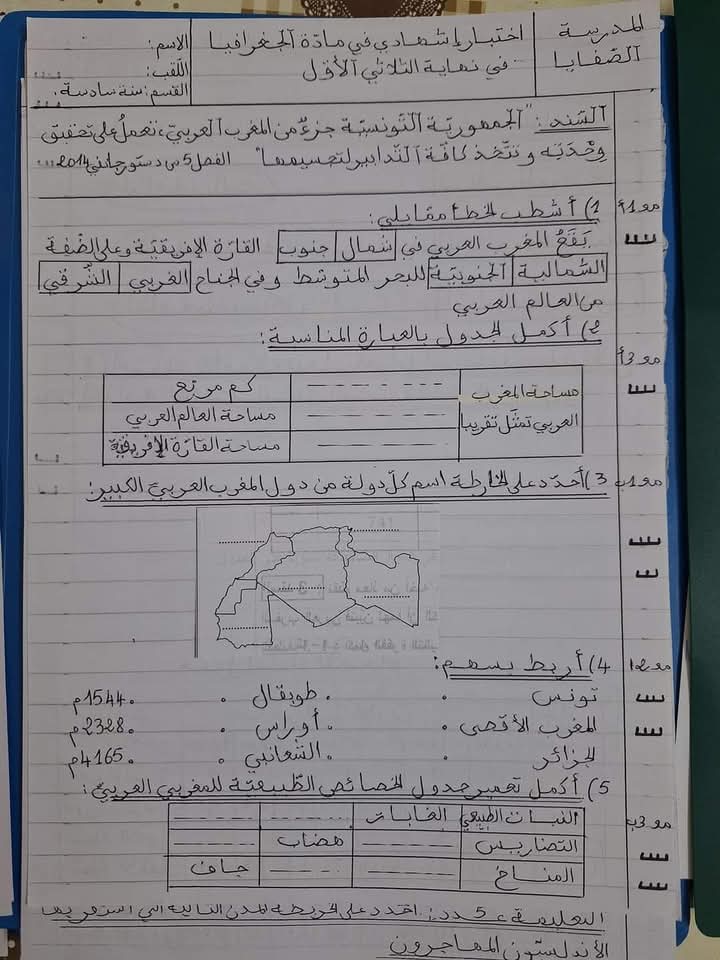 المدرسة
الصّفايا
اختبار إشهادي في مادّة الجغرافيا
في نهاية الثلاثي الأوّل
الاسم:
اللّقب:
القسم: سنة سادسة.
السّند: "الجمهوريّة التّونسيّة جزءٌ من المغرب العربيّ، تعمل على تحقيق
وحْدَتِه وتتّخذ كافّة التّدابير لتجسيمها" الفصل 5 من دستور جانفي 2014...
مع 1أ
1) أشطب الخطأ مقابلي:
يَقَعُ المغرب العربي في شمال جنوب القارّة الإفريقيّة وعلى الضّفة
الشّمالية الجنوبيّة للبحر المتوسّط وفي الجناح الغربي الشّرقي
من العالم العربي
2) أكمل الجدول بالعبارة المناسبة:
مع 3أ
مساحة المغرب
العربي تمثّل تقريبا
كم مربّع
مساحة العالم العربي
مساحة القارّة الإفريقيّة
مع 1ب
3) أحدّد على الخارطة اسم كلّ دولة من دول المغرب العربيّ الكبير:
مع 2أ
4) أربط بسهم:
تونس . . طوبقال . . 1544م
المغرب الأقصى . . أوراس . . 2328م
الجزائر . . الشّعانبي . . 4165م
5) أكمل تعمير جدول الخصائص الطّبيعيّة للمغرب العربيّ:
مع 3ب
النبات الطّبيعي الغابات
التضاريس هضاب
المناخ جاف
التعليمة عـ5ـدد: أحدد على الخريطة المدن التالية التي استقر بها
الأندلسيّون المهاجرون